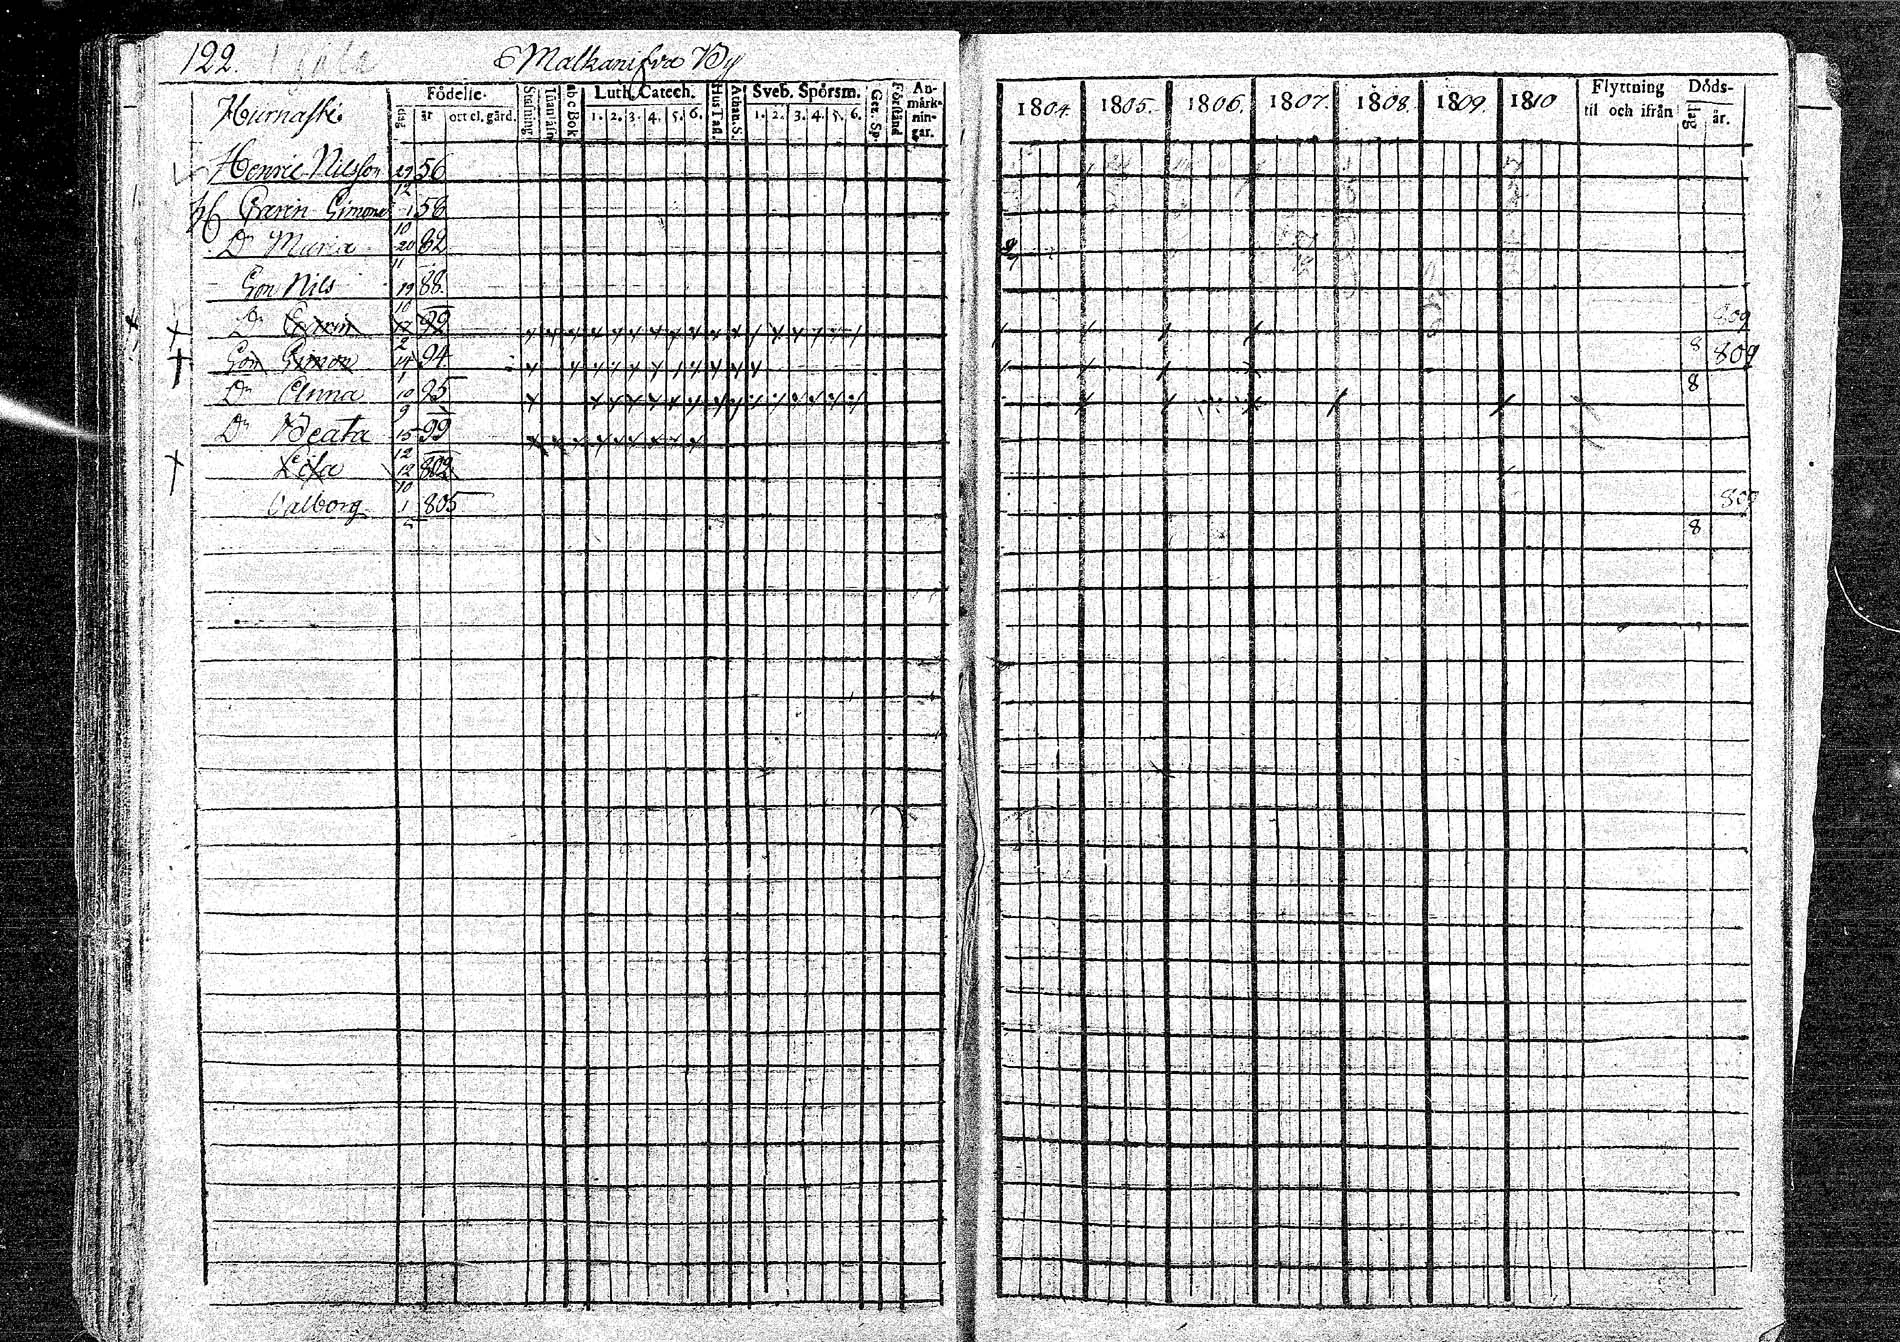 122.
Malkanisva By
Hurnaski.
Födelse-
dag
år
ort el. gård.
abc Bok
Luth. Catech.
1. 2. 3. 4. 5. 6.
Hus Tafl.
Athan. S.
Sveb. Spörsm.
1. 2. 3. 4. 5. 6.
Ger. Sp.
Förstånd
An-
märk-
nin-
gar.
1804. 1805. 1806. 1807. 1808. 1809. 1810
Flyttning
til och ifrån
Döds-
dag
år.
Henric Nilsson 29/12 56
H Carin Simons 1/10 58
Dr Maria 20/11 82
Son Nils 19/10 88
Dr Carin 17/2 92 8 809
Son Simon 14/1 94 8 809
Dr Anna 10/9 95
Dr Beata 15/12 99
Lisa 12/10 802 8 809
Valborg 1/5 805